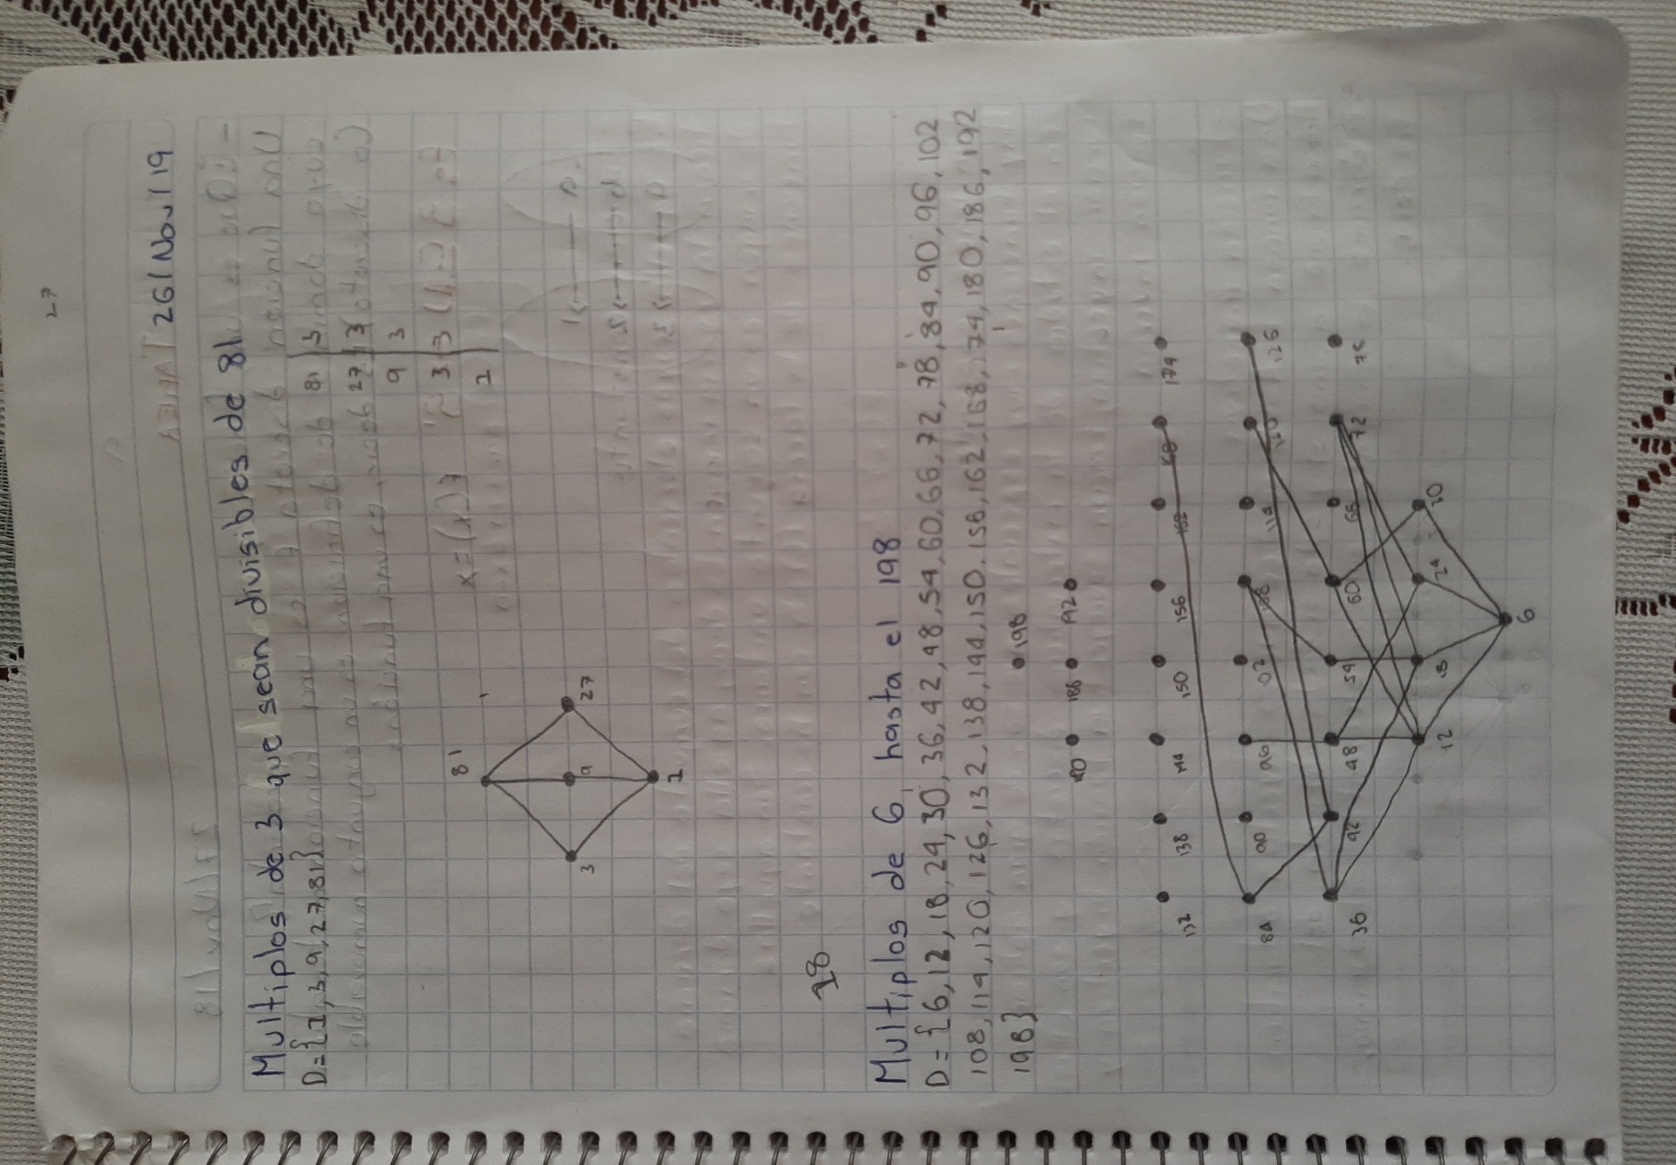 27
26/Nov/19
Multiplos de 3 que sean divisibles de 81
D={1,3,9,27,81}
81 | 3
27 | 3
9 | 3
3 | 3
1
81
3 9 27
1
28
Multiplos de 6, hasta el 198
D={6,12,18,24,30,36,42,48,54,60,66,72,78,84,90,96,102
108,114,120,126,132,138,144,150,156,162,168,174,180,186,192
198}
198
186 192
132 138 144 150 156 162 168 174
84 90 96 102 108 114 120 126
36 42 48 54 60 66 72
12 18 24 30
6